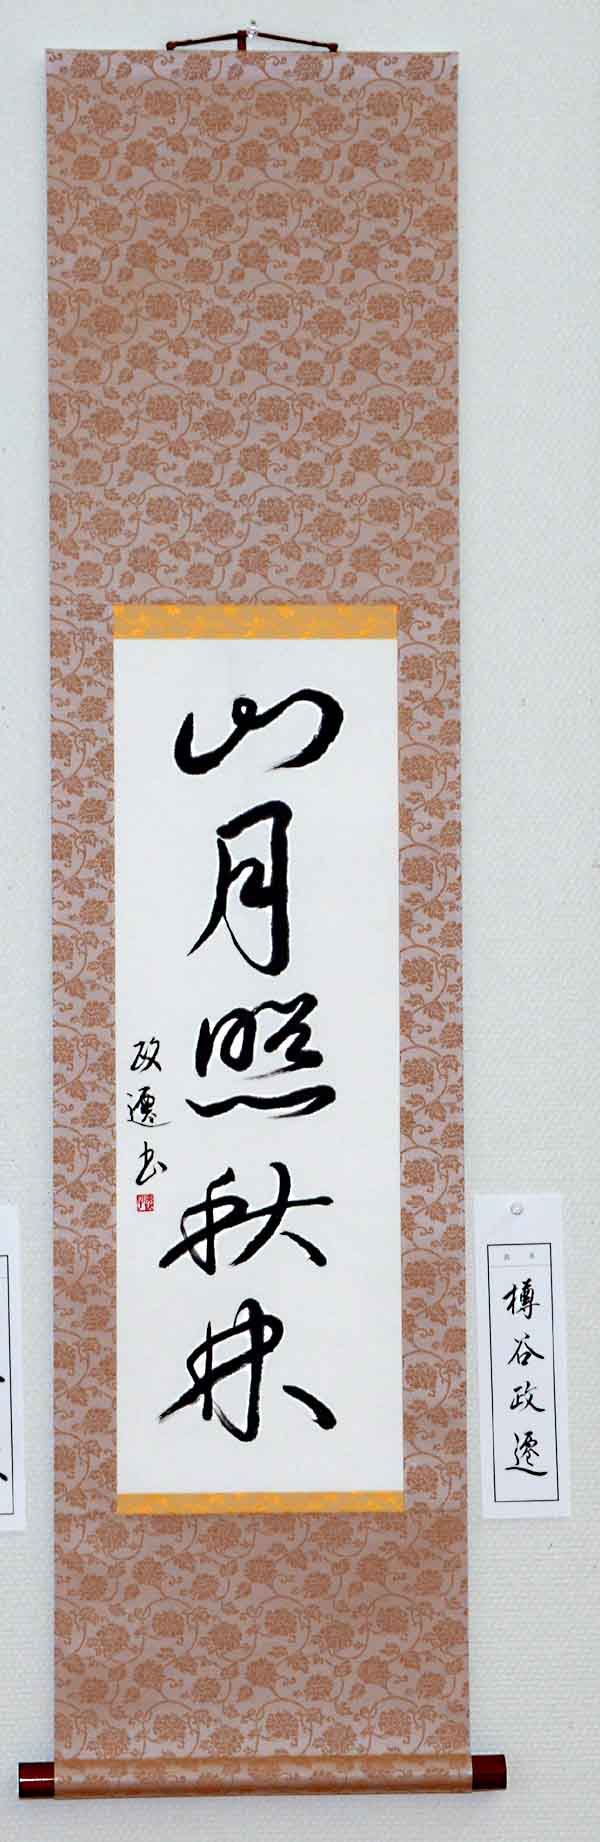 山月照秋林
政遷書
樽谷政遷